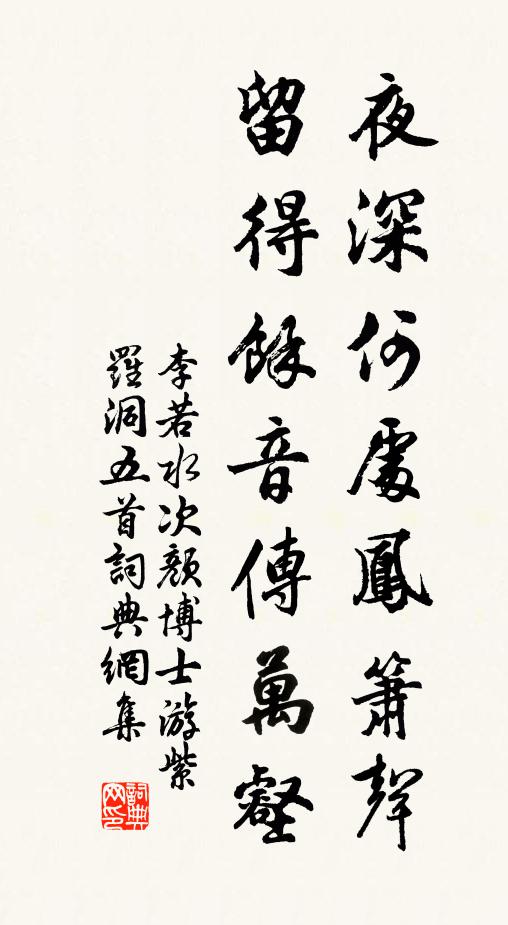 夜深何處鳳簫聲
留得餘音傳萬壑
李若水次顏博士游紫
羅洞五首詞典網集
詞典
网印